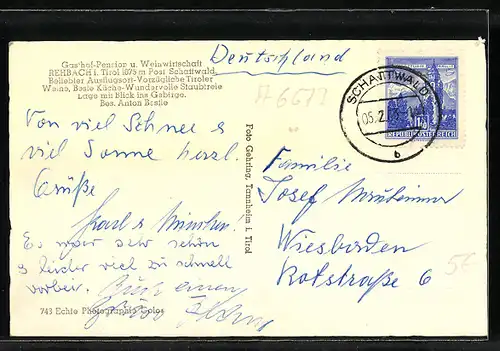 Gasthof-Pension u. Weinwirtschaft
REHBACH i. Tirol 1875 m Post Schattwald.
Beliebter Ausflugsort-Vorzügliche Tiroler
Weine, Beste Küche-Wundervolle Staubfreie
Lage mit Blick ins Gebirge.
Bes. Anton Beslle
Deutschland
SCHATTWALD
05.2.
b
REPUBLIK ÖSTERREICH
Von viel Schnee &
viel Sonne herzl.
Grüße
Es war sehr schön
& leider viel zu schnell
vorbei.
743 Echte Photographie Color
Foto Gehring, Tannheim i. Tirol
Familie
Josef
Wiesbaden
Rotstraße 6
5€